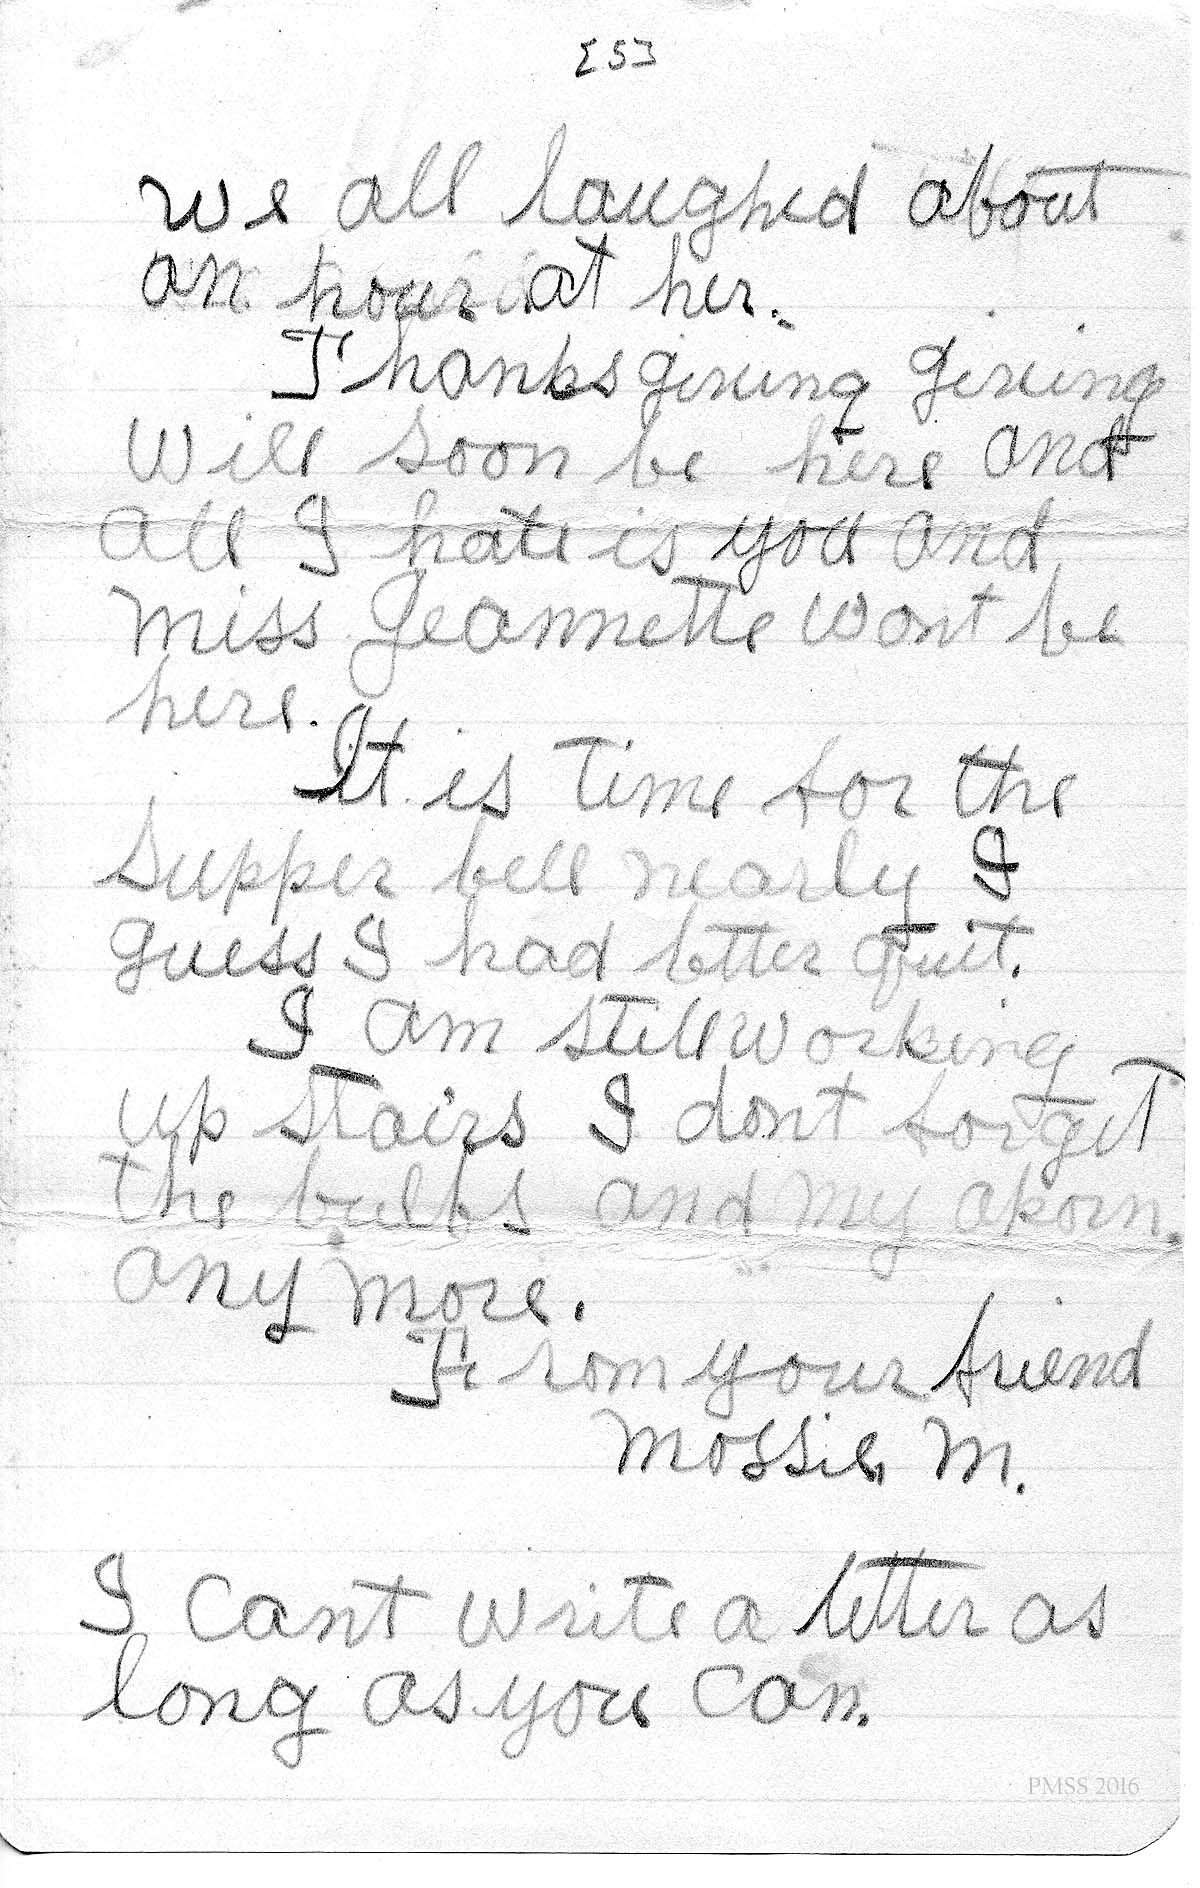 [5]
we all laughed about
an hour at her.
Thanksgiving giving
will soon be here and
all I hate is you and
miss Jeannette wont be
here.
It is time for the
supper bell nearly I
guess I had better quit.
I am still working
up stairs I dont forget
the bulbs and my aporn.
any more.
From your friend
Mossie M.
I cant write a letter as
long as you can.
PMSS 2016